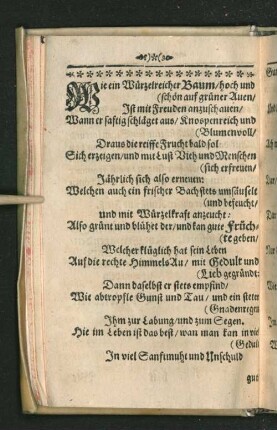 Wie ein Würzelreicher Baum/hoch und
(schön auf grüner Auen/
Ist mit Freuden anzuschauen/
Wann er safftig schläget aus/Knospenreich und
(Blumenvoll/
Draus die reiffe Frucht bald sol
Sich erzeigen/und mit Lust Vieh und Menschen
(sich erfreuen/
Jährlich sich also erneuen:
Welchen auch ein frischer Bach stets umsäuselt
(und befeucht/
und mit Würzelkraft anzeucht:
Also grünt und blüht der/und kan gute Früch-
(te geben/
Welcher klüglich hat sein Leben
Auf die rechte Himmels Au/mit Gedult und
(Lieb gegründt:
Dann daselbst er stets empfind/
Wie abtropfle Gunst und Tau/und ein steter
(Gnadenregen
Ihm zur Labung/und zum Segen.
Hie im Leben ist das best/wan man kan in
(Gedul
In viel Sanftmuht und Unschuld
gut